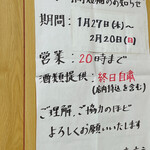 時短営業のお知らせ
期間：1月27日(木)～
2月20日(日)
営業：20時まで
酒類提供：終日自粛
(店内持込を含む)
ご理解、ご協力のほど
よろしくお願いいたします